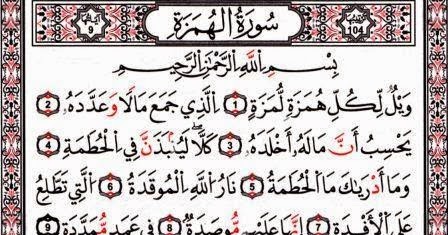 آياتها 9 سُورَةُ الْهُمَزَةِ 104
بِسْمِ اللَّهِ الرَّحْمَٰنِ الرَّحِيمِ
وَيْلٌ لِّكُلِّ هُمَزَةٍ لُّمَزَةٍ 1 الَّذِي جَمَعَ مَالًا وَعَدَّدَهُ 2
يَحْسِبُ أَنَّ مَالَهُ أَخْلَدَهُ 3 كَلَّا ۖ لَيُنْبَذَنَّ فِي الْحُطَمَةِ 4
وَمَا أَدْرَىكَ مَا الْحُطَمَةُ 5 نَارُ اللَّهِ الْمُوقَدَةُ 6 الَّتِي تَطَّلِعُ
عَلَى الْأَفْئِدَةِ 7 إِنَّهَا عَلَيْهِم مُّوصَدَةٌ 8 فِي عَمَدٍ مُّمَدَّدَةٍ 9